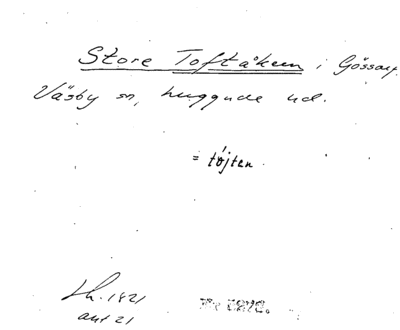 Store Toftåkern i Gössarp.
Väsby sn, Luggude hd.
= tøjten
Lh. 1821
akt 21